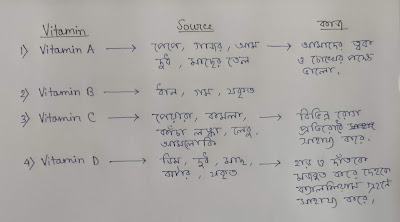 Vitamin Source কাজ
1) Vitamin A → পেঁপে, গাজর, আম → আমাদের ত্বক
দুধ, মাছের তেল ও চোখের পক্ষে
ভালো,
2) Vitamin B → ধান, গম, যকৃত
3) Vitamin C → পেয়ারা, কমলা, → বিভিন্ন রোগ
কাঁচা লঙ্কা, লেবু, প্রতিরোধে
আমলোকি সাহায্য করে,
4) Vitamin D → ডিম, দুধ, মাছ, → হাড় ও দাঁতকে
যকৃত মজবুত করে দেহকে
ক্যালসিয়াম গ্রহনে
সাহায্য করে,